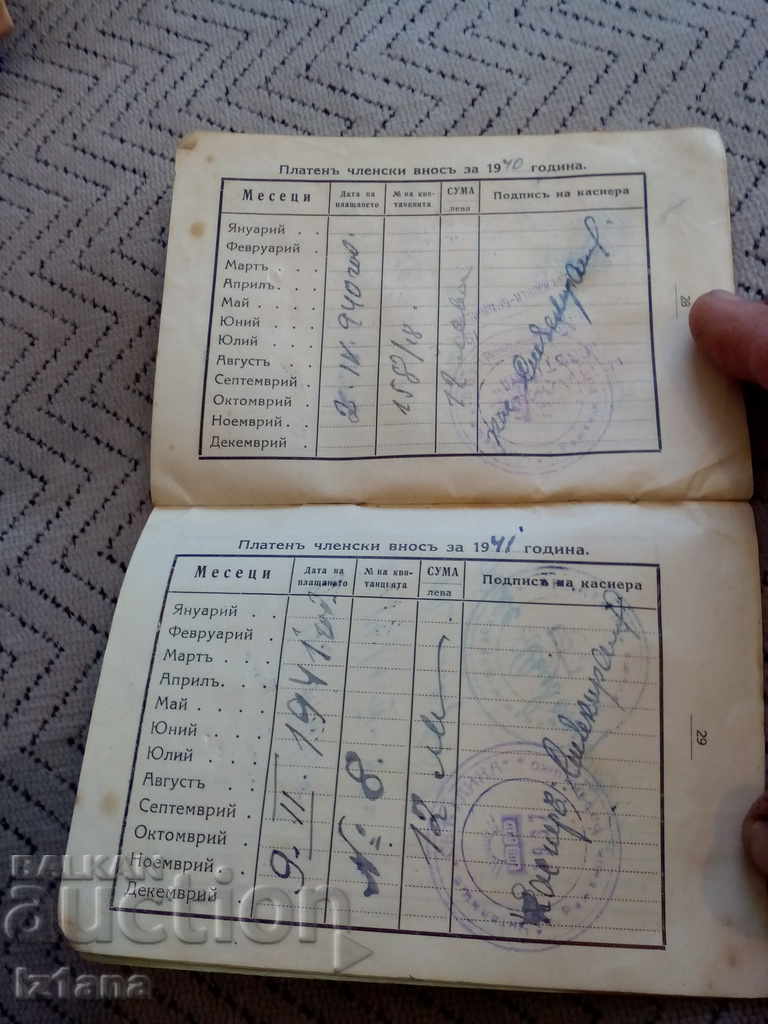 Платенъ членски вносъ за 1940 година.
Месеци
Дата на плащането
№ на квитанцията
СУМА
лева
Подписъ на касиера
Януарий
Февруарий
Мартъ
Априлъ
Май
Юний
Юлий
Августъ
Септемврий
Октомврий
Ноемврий
Декемврий
158/18
12
28
Платенъ членски вносъ за 1941 година.
Месеци
Дата на плащането
№ на квитанцията
СУМА
лева
Подписъ на касиера
Януарий
Февруарий
Мартъ
Априлъ
Май
Юний
Юлий
Августъ
Септемврий
Октомврий
Ноемврий
Декемврий
9. II. 1941
№ 8.
12
Касиеръ:
29
BALKAN
auction
iz1ana